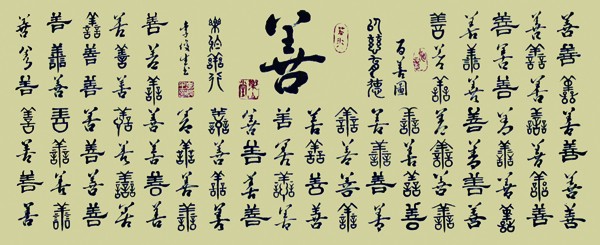 善善善善善善善
善善善善善善善
善善善善善善善
善善善善善善善
善善善善善善善
百善圖
善
善善善善
善善善善
善善善善
善善善善
善善善善
善善善善
善善善善
善善善善
善善善善善善善
善善善善善善善
善善善善善善善
善善善善善善善
善善善善善善善